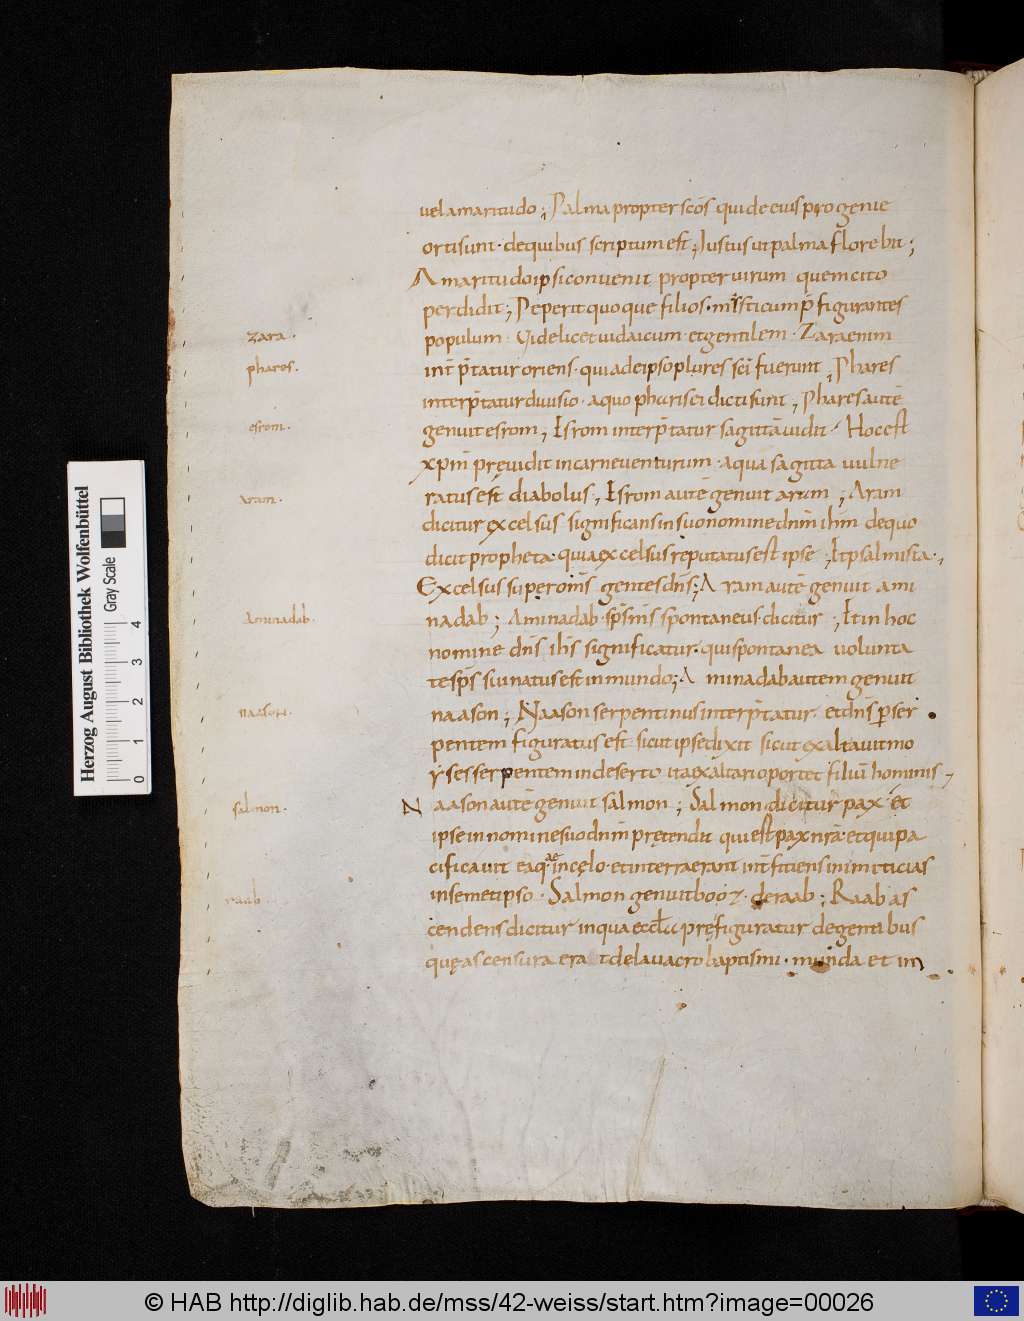 uelamaritudo ; Palma propter scōs qui de eius progenie
orti sunt · de quibus scriptum est ; Iustus ut palma florebit ;
Amaritudo ipsi conuenit propter uirum quem cito
perdidit ; Peperit quoque filios · misticum p̄figurantes
zara ·
populum · Videlicet iudaicum · et gentilem · Zara enim
phares ·
int̄ p̄tatur oriens · quia de ipso plures scī fuerunt ; Phares
interp̄tatur diuisio · a quo pharisei dicti sunt ; Phares autē
esrom ·
genuit esrom ; Isrom interp̄tatur sagittā uidit · Hoc est
xp̄m pręuidit in carne uenturum · a qua sagitta uulne
aram ·
ratus est diabolus ; Isrom autē genuit aram ; Aram
dicitur excelsus significans in suo nomine dn̄m ih̄m de quo
dicit propheta · quia excelsus reputatus est ipse ; It psalmista · ,
Excelsus super om̄s gentes dn̄s ; Aram autē genuit ami
Aminadab ·
nadab ; Aminadab · sp̄s m̄s spontaneus · dicitur ; It in hoc
nomine dn̄s ih̄s significatur · qui spontanea uolunta
te sp̄s sui natus est in mundo ; Aminadab autem genuit
naason ·
naason ; Naason serpentinus interp̄tatur · et dn̄s p̄ ser
pentem figuratus est · sicut ipse dixit sicut exaltauit mo
yses serpentem in deserto ita exaltari oportet filiū hominis ,
salmon ·
Naason autē genuit salmon ; Salmon dicitur pax · et
ipse in nomine suo dn̄m prętendit qui est pax nr̄a · et qui pa
cificauit ea q̄ ae in cęlo · et in terra erant int̄ficiens inimicicias
raab ·
in semetipso · Salmon genuit booz · de raab ; Raab as
cendens dicitur in qua eccl̄a pręfiguratur de gentibus
quę ascensura erat de lauacro baptismi · munda et im
Herzog August Bibliothek Wolfenbüttel
Gray Scale
0 1 2 3 4
© HAB http://diglib.hab.de/mss/42-weiss/start.htm?image=00026